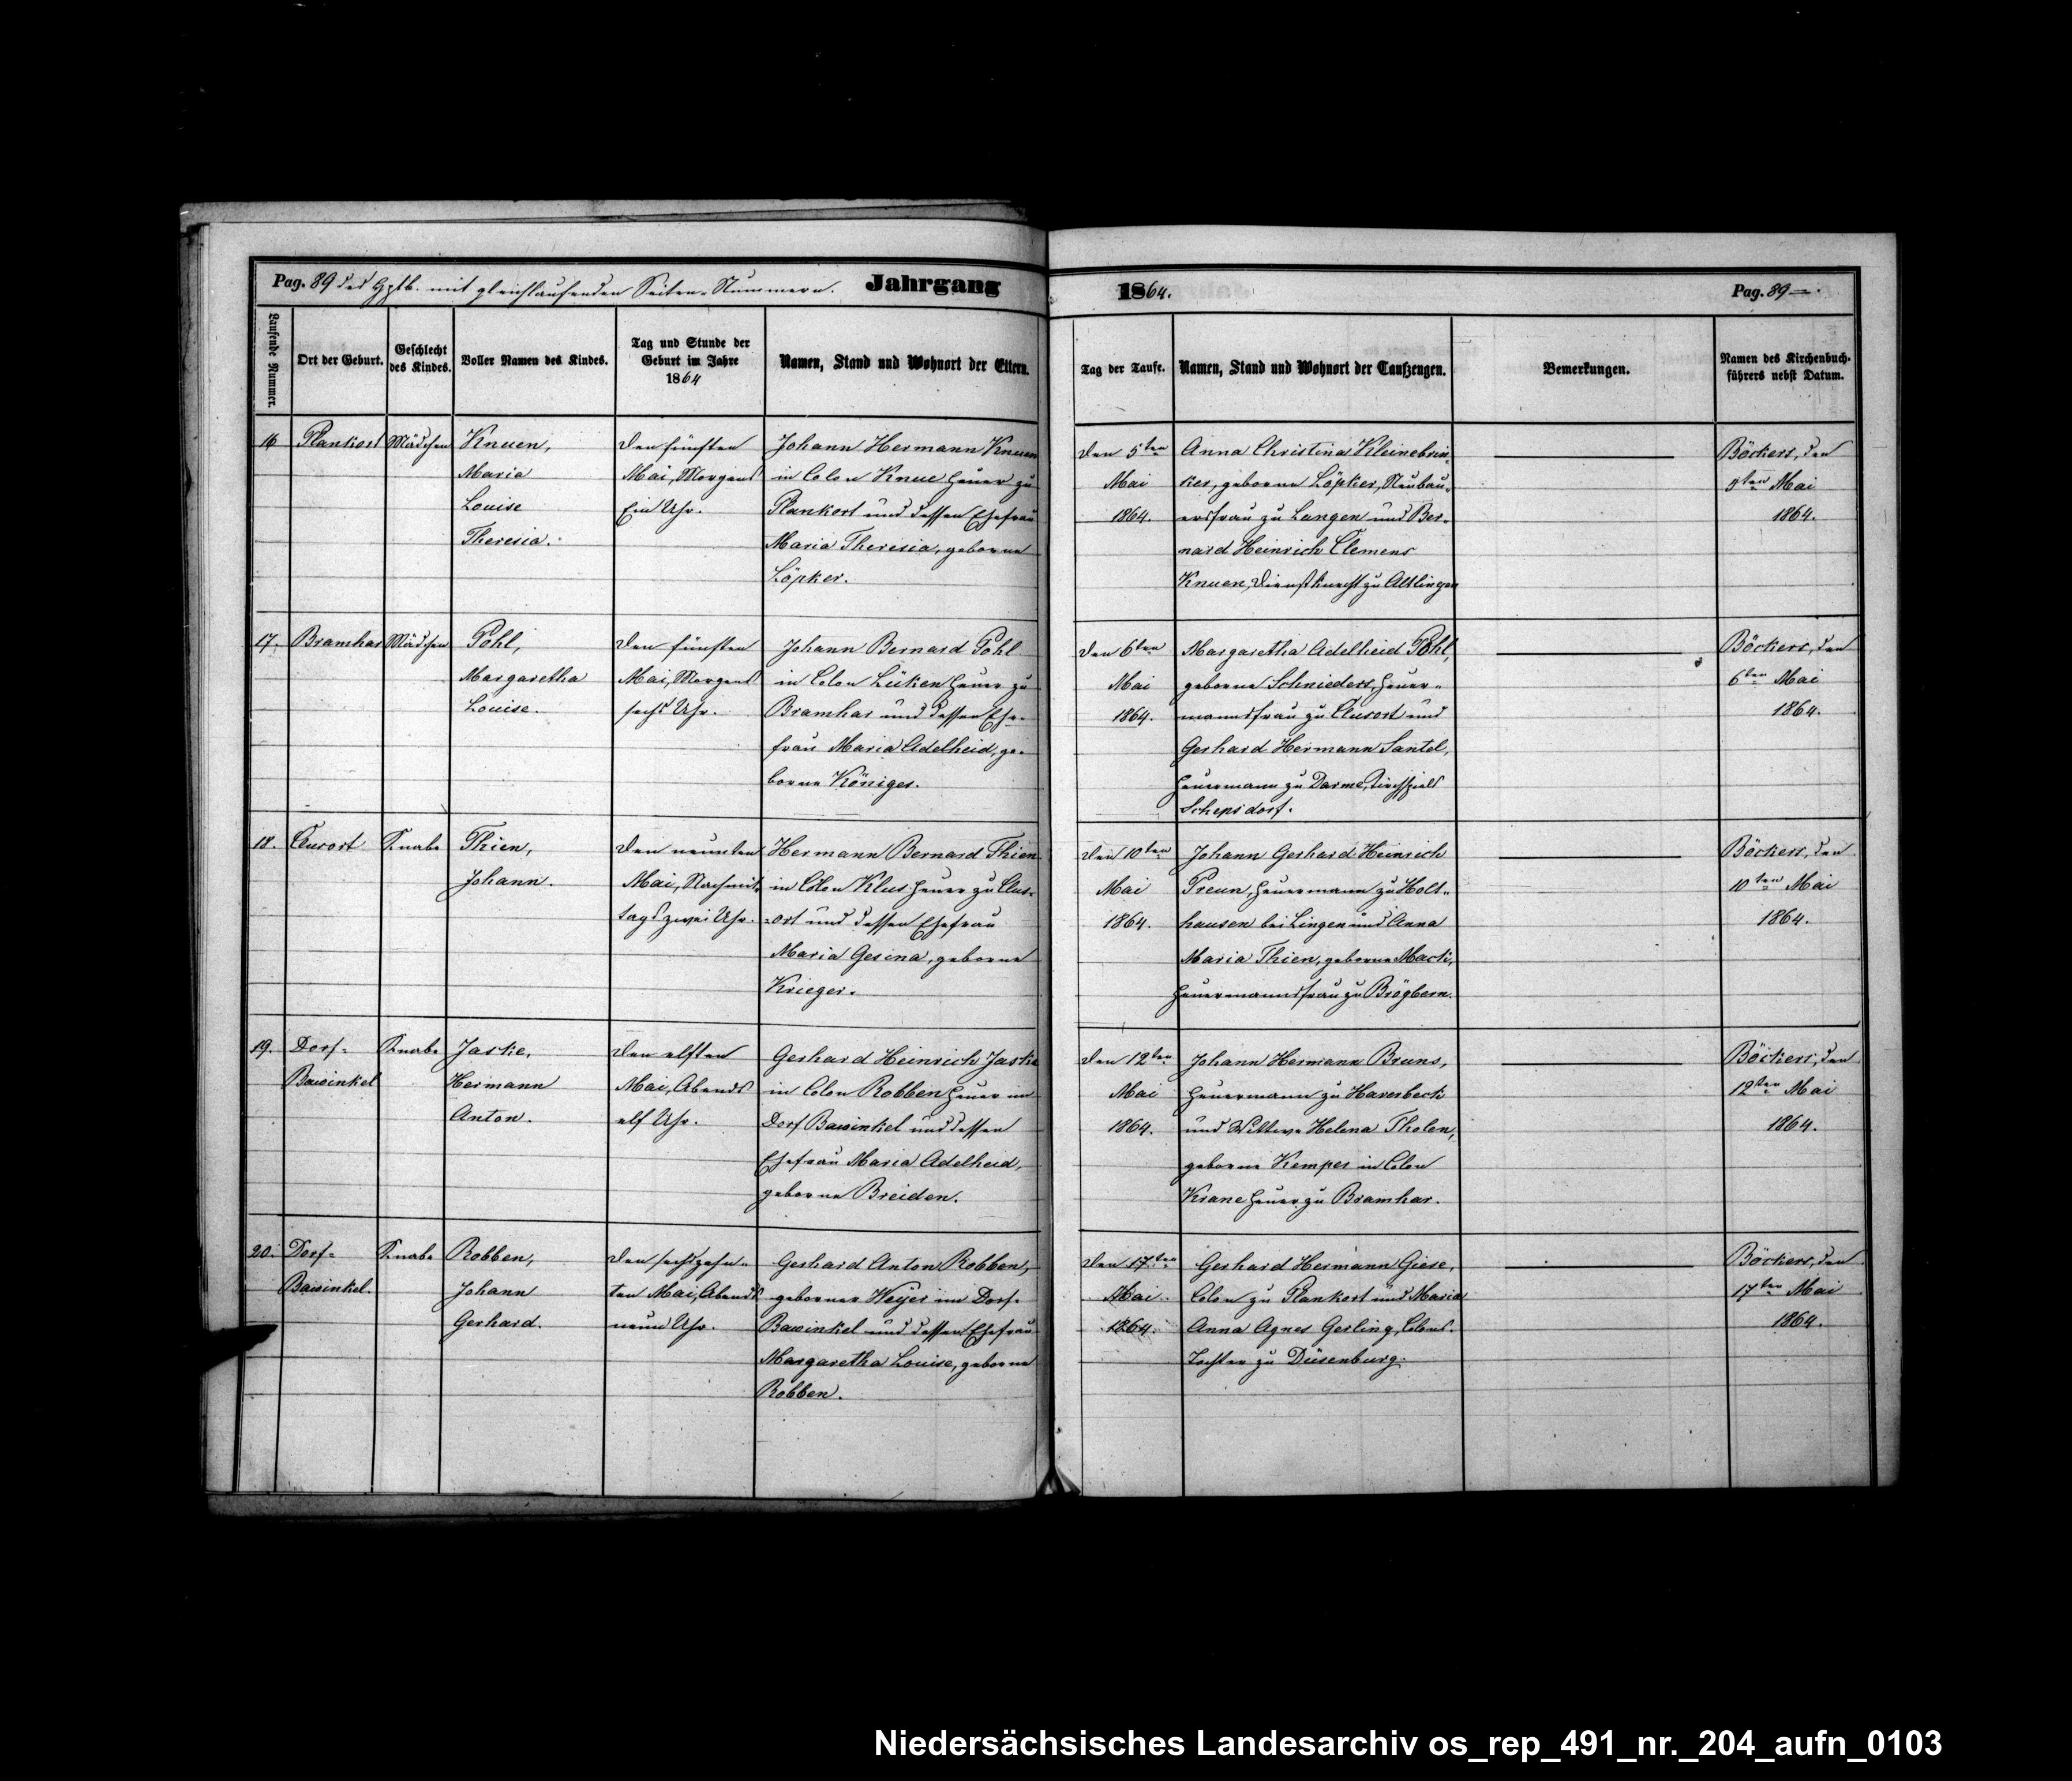 Pag. 89 des Hptb. mit gleichlaufenden Seiten-Nummern. Jahrgang 1864. Pag. 89
Laufende Nummer.
Ort der Geburt.
Geschlecht
des Kindes.
Voller Namen des Kindes.
Tag und Stunde der
Geburt im Jahre
1864
Namen, Stand und Wohnort der Eltern.
Tag der Taufe.
Namen, Stand und Wohnort der Taufzeugen.
Bemerkungen.
Namen des Kirchenbuch-
führers nebst Datum.
16
Plankort
Mädchen
Knuen,
Maria
Louise
Theresia.
Den fünften
Mai, Morgens
Ein Uhr.
Johann Hermann Knuen
in Colon Knue Heuer zu
Plankort und dessen Ehefrau
Maria Theresia, geborne
Löpker.
Den 5ten
Mai
1864.
Anna Christina Kleinebrin-
ker, geborne Löpker, Neubau-
ersfrau zu Langen und Ber-
nard Heinrich Clemens
Knuen, Dienstknecht zu Altlingen
Böckers, den
5ten Mai
1864.
17.
Bramhar
Mädchen
Pohl,
Margaretha
Louise.
Den fünften
Mai, Morgens
sechs Uhr.
Johann Bernard Pohl
in Colon Lüken Heuer zu
Bramhar und dessen Ehe-
frau Maria Adelheid, ge-
borne Königes.
Den 6ten
Mai
1864.
Margaretha Adelheid Pohl,
geborne Schnieders, Heuer-
mannsfrau zu Clusort und
Gerhard Hermann Santel,
Heuermann zu Darme, Kirchspiels
Schepsdorf.
Böckers, den
6ten Mai
1864.
18.
Clusort
Knabe
Thien,
Johann.
Den neunten
Mai, Nachmit-
tags zwei Uhr.
Hermann Bernard Thien
in Colon Klus Heuer zu Clus-
-ort und dessen Ehefrau
Maria Gesina, geborne
Krieger.
Den 10ten
Mai
1864.
Johann Gerhard Heinrich
Preun, Heuermann zu Holt-
hausen bei Lingen und Anna
Maria Thien, geborne Mack,
Heuermannsfrau zu Brögbern.
Böckers, den
10ten Mai
1864.
19.
Dorf-
Bawinkel
Knabe
Jaske,
Hermann
Anton.
Den elften
Mai, Abends
elf Uhr.
Gerhard Heinrich Jaske
in Colon Robben Heuer im
Dorf Bawinkel und dessen
Ehefrau Maria Adelheid,
geborne Breiden.
Den 12ten
Mai
1864.
Johann Hermann Bruns,
Heuermann zu Haverbeck
und Wittwe Helena Tholen,
geborne Kemper in Colon
Krane Heuer zu Bramhar.
Böckers, den
12ten Mai
1864.
20.
Dorf-
Bawinkel.
Knabe
Robben,
Johann
Gerhard.
Den sechszehn-
ten Mai, Abends
neun Uhr.
Gerhard Anton Robben,
geborner Heyer im Dorf-
Bawinkel und dessen Ehefrau
Margaretha Louise, geborne
Robben.
Den 17ten
Mai
1864.
Gerhard Hermann Giese,
Colon zu Plankort und Maria
Anna Agnes Gerling, Colons-
Tochter zu Düsenburg.
Böckers, den
17ten Mai
1864.
Niedersächsisches Landesarchiv os_rep_491_nr._204_aufn_0103